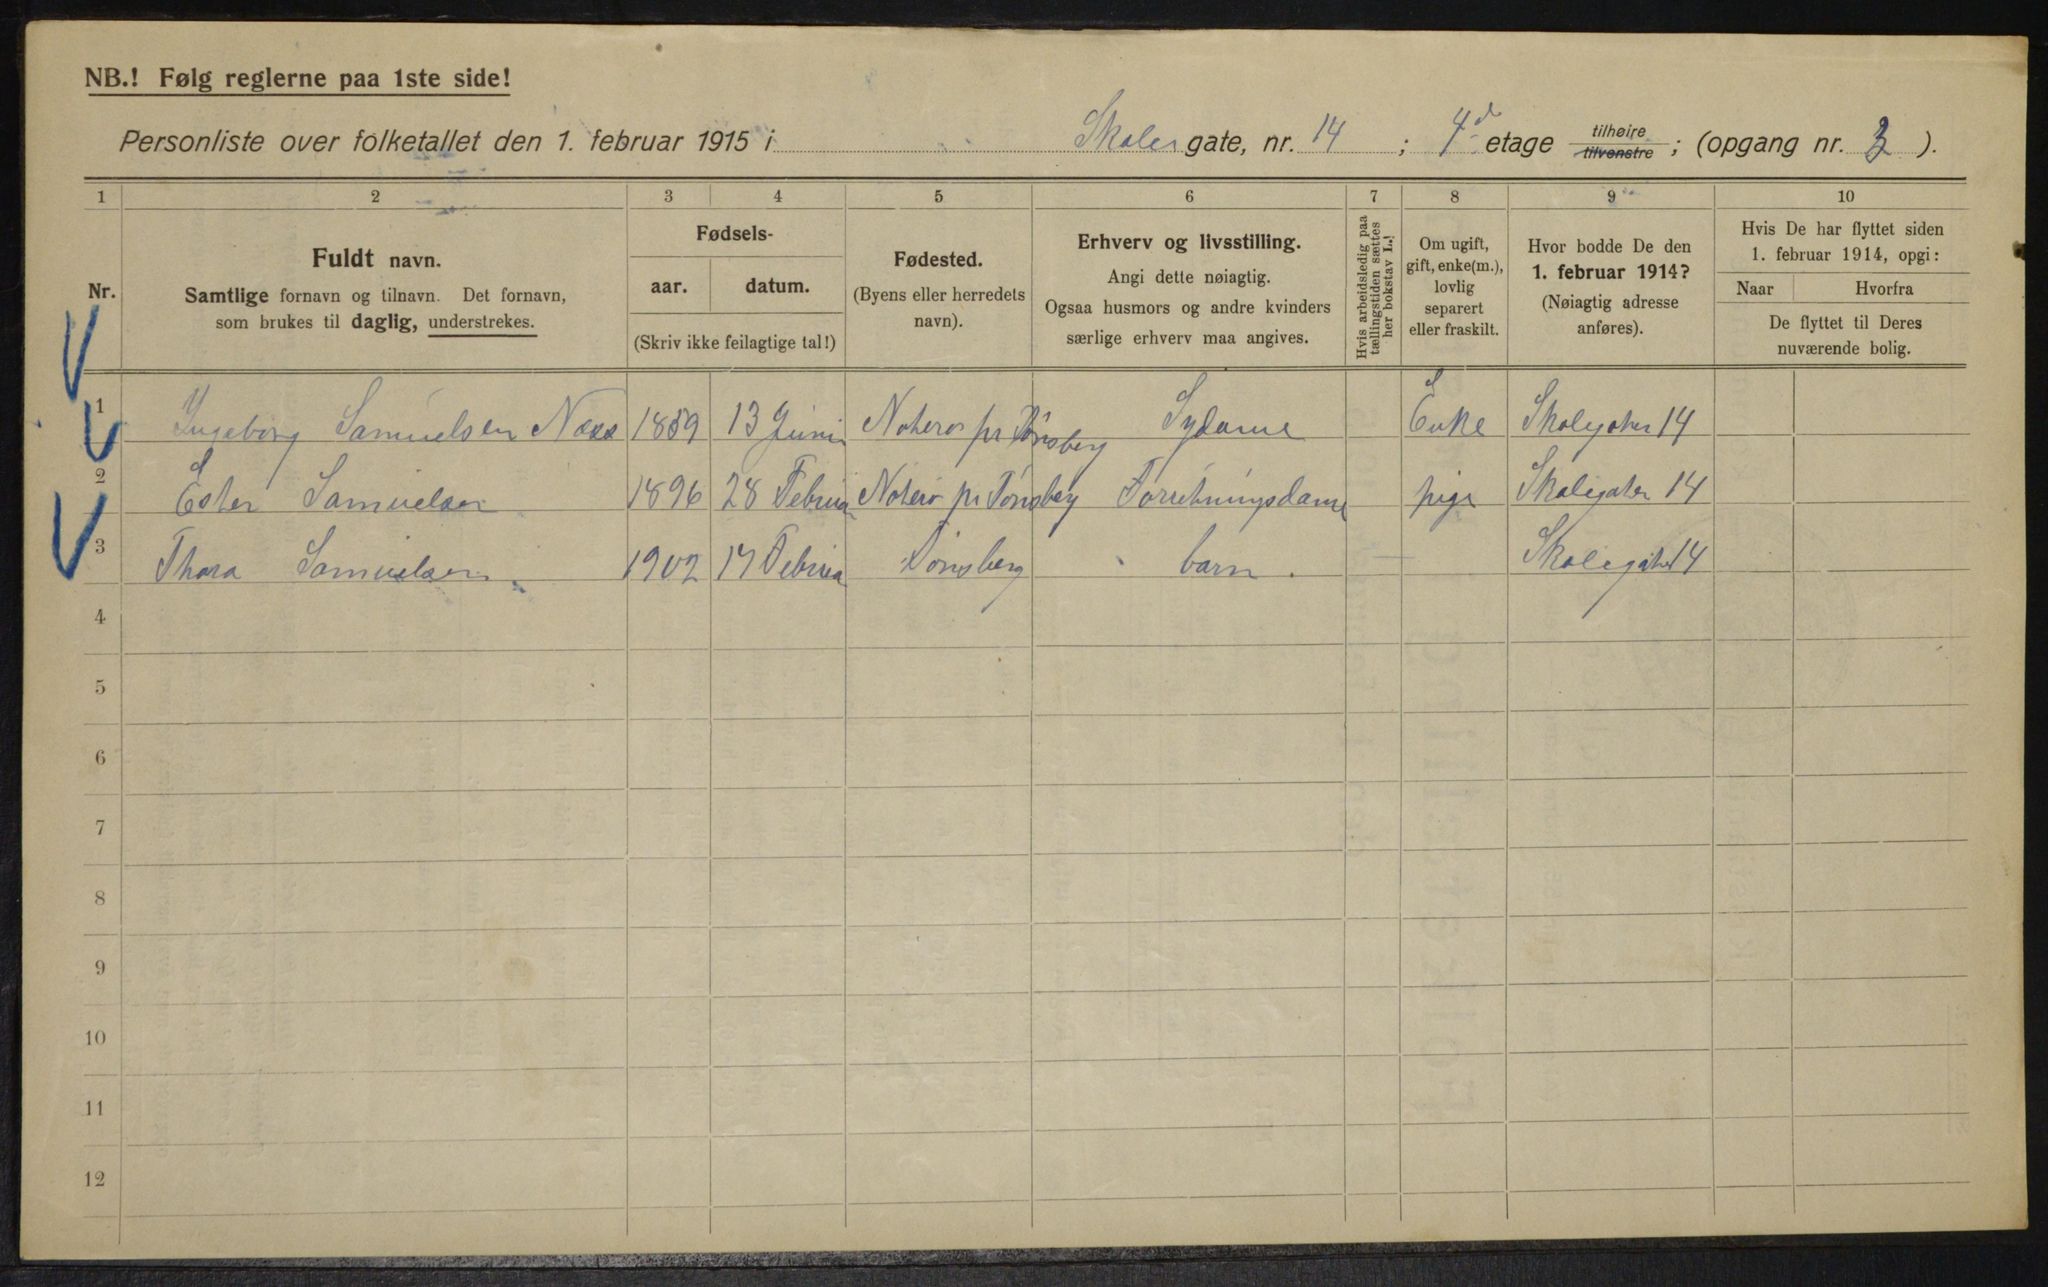 NB.! Følg reglerne paa 1ste side!
Personliste over folketallet den 1. februar 1915 i Skolengate, nr. 14 ; 4d etage tilhøire tilvenstre ; (opgang nr. 3 ).
1 2 3 4 5 6 7 8 9 10
Nr.
Fuldt navn.
Samtlige fornavn og tilnavn. Det fornavn,
som brukes til daglig, understrekes.
Fødsels-
aar. datum.
(Skriv ikke feilagtige tal!)
Fødested.
(Byens eller herredets
navn).
Erhverv og livsstilling.
Angi dette nøiagtig.
Ogsaa husmors og andre kvinders
særlige erhverv maa angives.
Hvis arbeidsledig paa
tællingstiden sættes
her bokstav L.!
Om ugift,
gift, enke(m.),
lovlig
separert
eller fraskilt.
Hvor bodde De den
1. februar 1914?
(Nøiagtig adresse
anføres).
Hvis De har flyttet siden
1. februar 1914, opgi:
Naar Hvorfra
De flyttet til Deres
nuværende bolig.
1 Ingeborg Samuelsen Næss 1859 13 Juni Noterø pr Tønsberg Sydame Enke Skolegaten 14
2 Ester Samuelsen 1896 28 Februar Noterø pr Tønsberg Forretningsdame pige Skolegaten 14
3 Thora Samuelsen 1902 17 Februar Tønsberg barn. Skolegaten 14
4
5
6
7
8
9
10
11
12